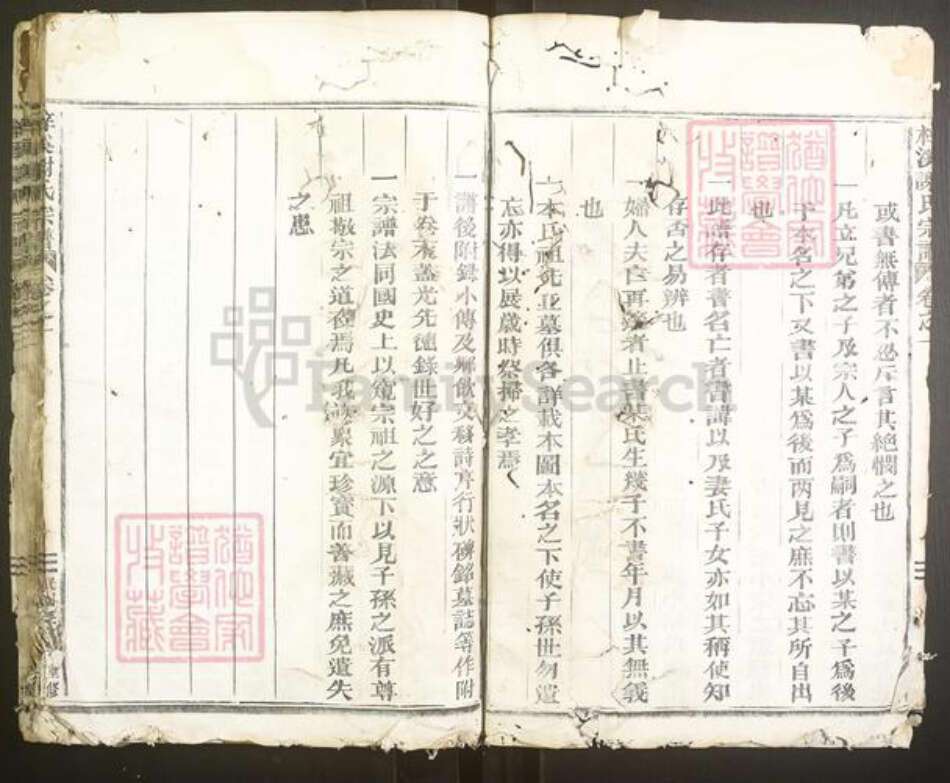 或書無傳者不忍斥言其絕憫之也
一凡立兄弟之子及宗人之子為嗣者則書以某之子為後
于本名之下又書以某為後而两見之庶不忘其所自出
也
一此譜存者書名亡者書諱以及妻氏子女亦如其稱使知
存否之易辨也
一婦人夫亡再適者止書某氏生幾子不書年月以其無義
也
一本氏祖先丘墓俱各詳載本圖本名之下使子孫世勿遺
忘亦得以展歲時祭掃之孝焉
一譜後附錄小傳及鄉飲文移詩序行狀碑銘墓誌等作附
于卷末蓋光先德錄世好之意
一宗譜法同國史上以窺宗祖之源下以見子孫之派有尊
祖敬宗之道存焉凡我族眾宜珍寶而善藏之庶免遺失
之患
謝氏宗譜 卷之一
FamilySearch